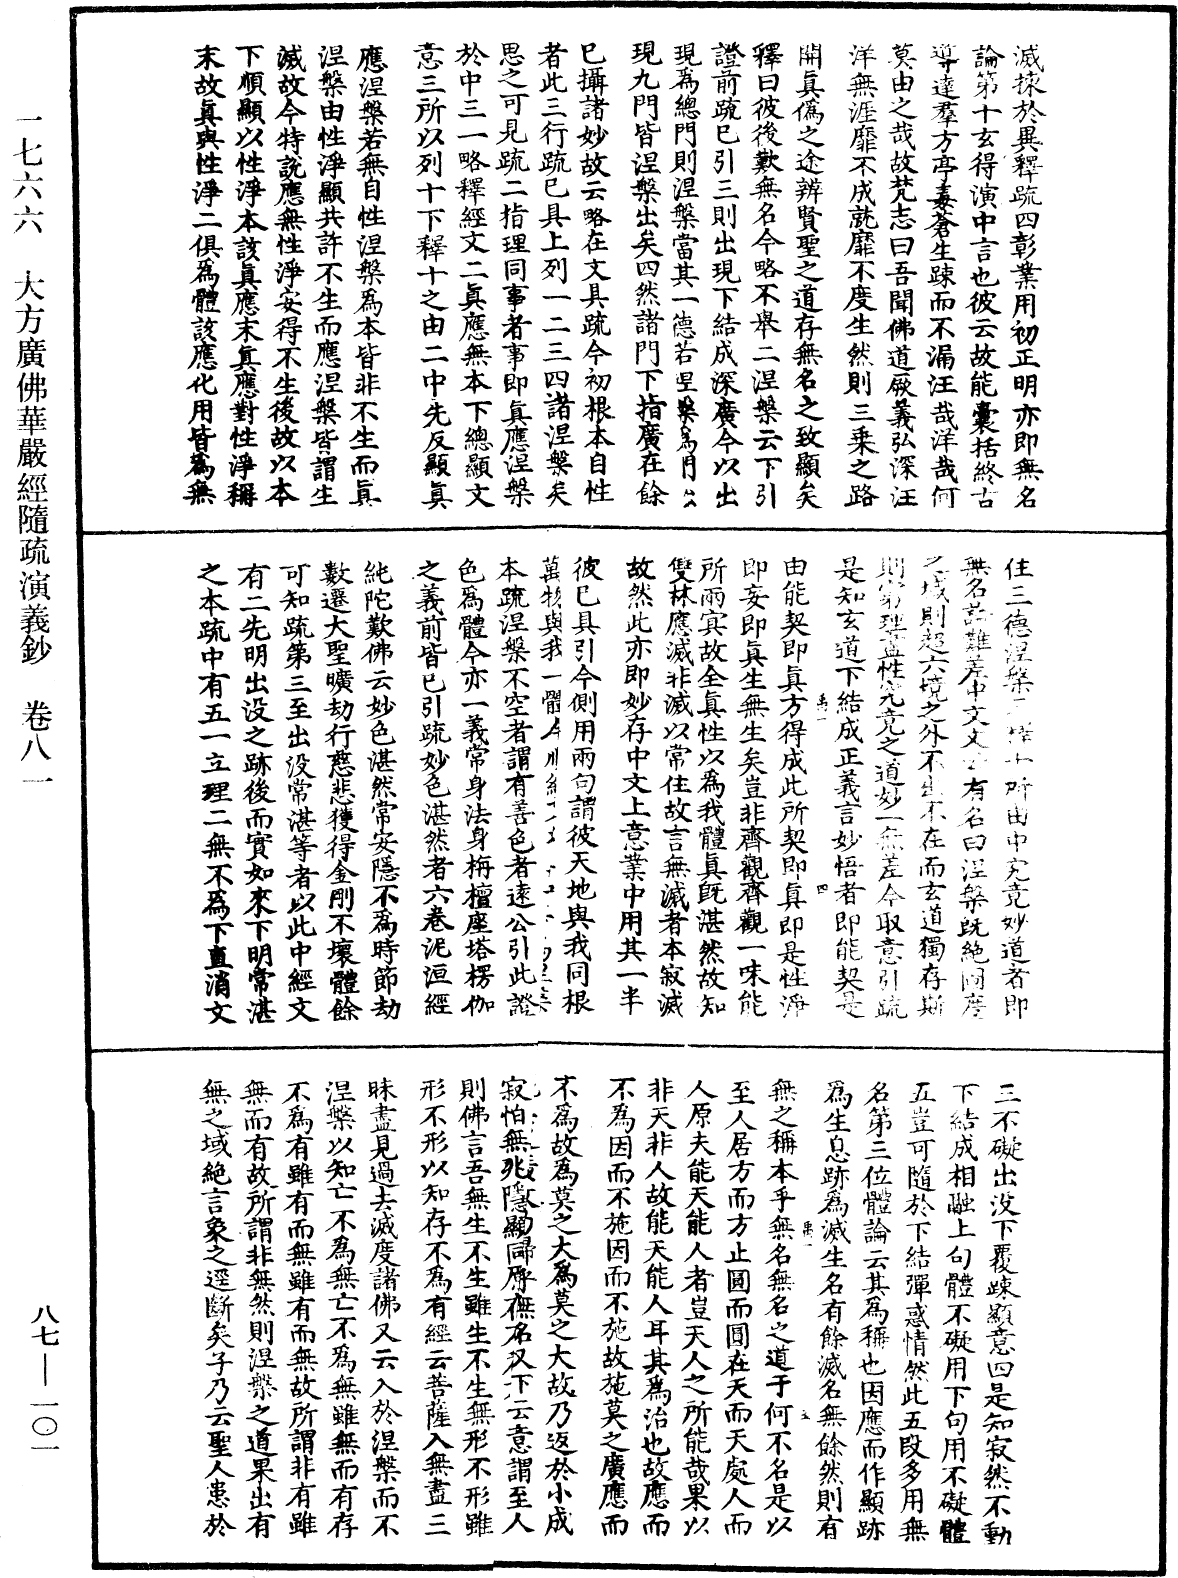 滅揀於異釋疏四彰業用初正明亦即無名
論第十玄得演中言也彼云故能囊括終古
導達羣方亭毒蒼生踈而不漏汪哉洋哉何
莫由之哉故梵志曰吾聞佛道厥義弘深汪
洋無涯靡不成就靡不度生然則三乗之路
開真僞之途辨賢聖之道存無名之致顯矣
釋曰彼後歎無名今略不舉二涅槃云下引
證前疏已引三則出現下結成深廣今以出
現爲總門則涅槃當其一德若涅槃爲門
現九門皆涅槃出矣四然諸門下指廣在餘
已攝諸妙故云略在文具疏今初根本自性
者此三行疏已具上列一二三四諸涅槃矣
思之可見疏二指理同事者事即真應涅槃
於中三一略釋經文二真應無本下總顯文
意三所以列十下釋十之由二中先反顯真
應涅槃若無自性涅槃爲本皆非不生而真
涅槃由性淨顯共許不生而應涅槃皆謂生
滅故今特説應無性淨安得不生後故以本
下順顯以性淨本該真應末真應對性淨稱
末故真與性淨二俱爲體該應化用皆爲無
住三德涅槃所由中究竟妙道者即
無名論難差中文文有名曰涅槃既絶圖度
之域則超六境之外不出不在而玄道獨存斯
則窮理盡性究竟之道妙一無差今取意引疏
是知玄道下結成正義言妙悟者即能契是
由能契即真方得成此所契即真即是性淨
即妄即真生無生矣豈非齊觀齊觀一味能
所兩寘故全真性以爲我體真既湛然故知
雙林應滅非滅以常住故言無滅者本寂滅
故然此亦即妙存中文上意業中用其一半
彼已具引今側用兩句謂彼天地與我同根
萬物與我一體
本疏涅槃不空者謂有善色者遠公引此證
色爲體今亦一義常身法身栴檀座塔楞伽
之義前皆已引疏妙色湛然者六卷泥洹經
純陀歎佛云妙色湛然常安隱不爲時節劫
數遷大聖曠劫行慈悲獲得金剛不壞體餘
可知疏第三至出没常湛等者以此中經文
有二先明出没之跡後而實如來下明常湛
之本疏中有五一立理二無不爲下直消文
三不礙出没下覆踈顯意四是知寂然不動
下結成相融上句體不礙用下句用不礙體
五豈可隨於下結彈惑情然此五段多用無
名第三位體論云其爲稱也因應而作顯跡
爲生息跡爲滅生名有餘滅名無餘然則有
無之稱本乎無名無名之道于何不名是以
至人居方而方止圓而圓在天而天處人而
人原夫能天能人者豈天人之所能哉果以
非天非人故能天能人耳其爲治也故應而
不爲因而不施因而不施故施莫之廣應而
不爲故爲莫之大爲莫之大故乃返於小成
寂怕無兆隱顯同原無名又下云意謂至人
則佛言吾無生不生雖生不生無形不形雖
形不形以知存不爲有經云菩薩入無盡三
昧盡見過去滅度諸佛又云入於涅槃而不
涅槃以知亡不爲無亡不爲無雖無而有存
不爲有雖有而無雖有而無故所謂非有雖
無而有故所謂非無然則涅槃之道果出有
無之域絶言象之逕斷矣子乃云聖人患於
一七六六 大方廣佛華嚴經隨疏演義鈔 卷八一
八七—一〇一